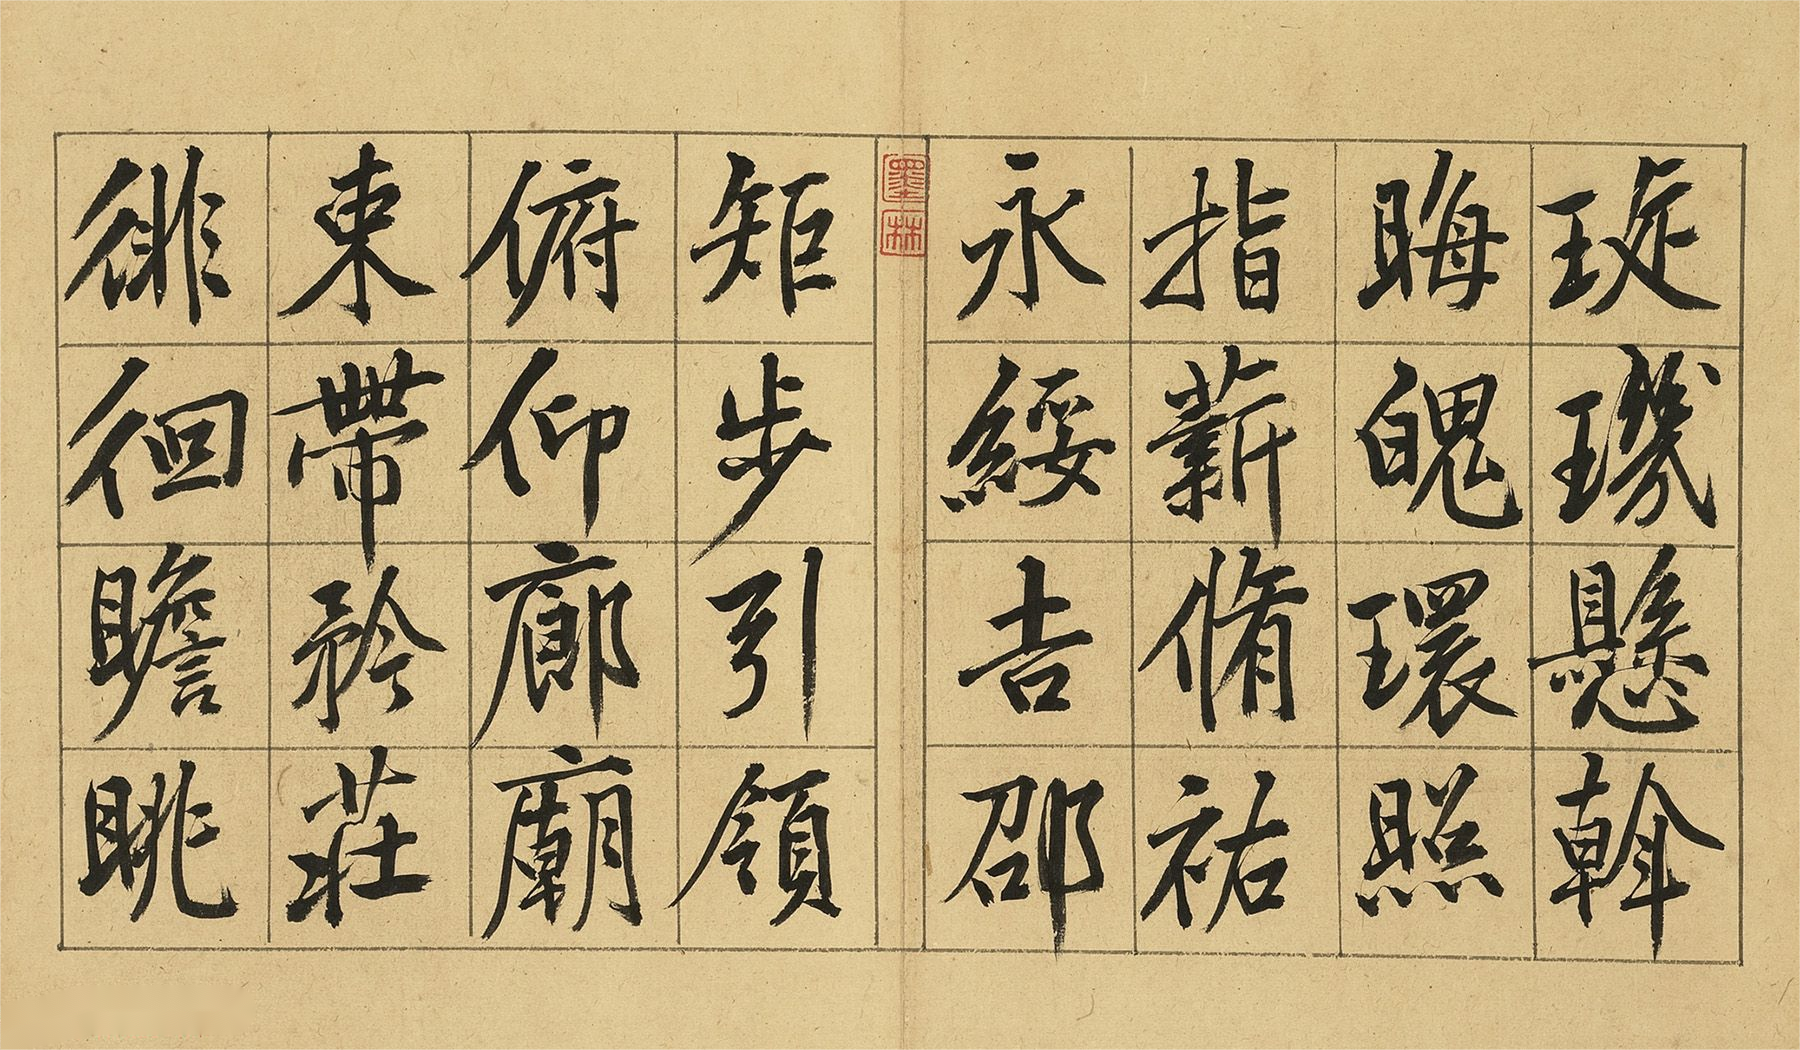 琁璣懸斡
晦魄環照
指薪脩祐
永綏吉邵
墨林
矩步引領
俯仰廊廟
束帶矜莊
徘徊瞻眺